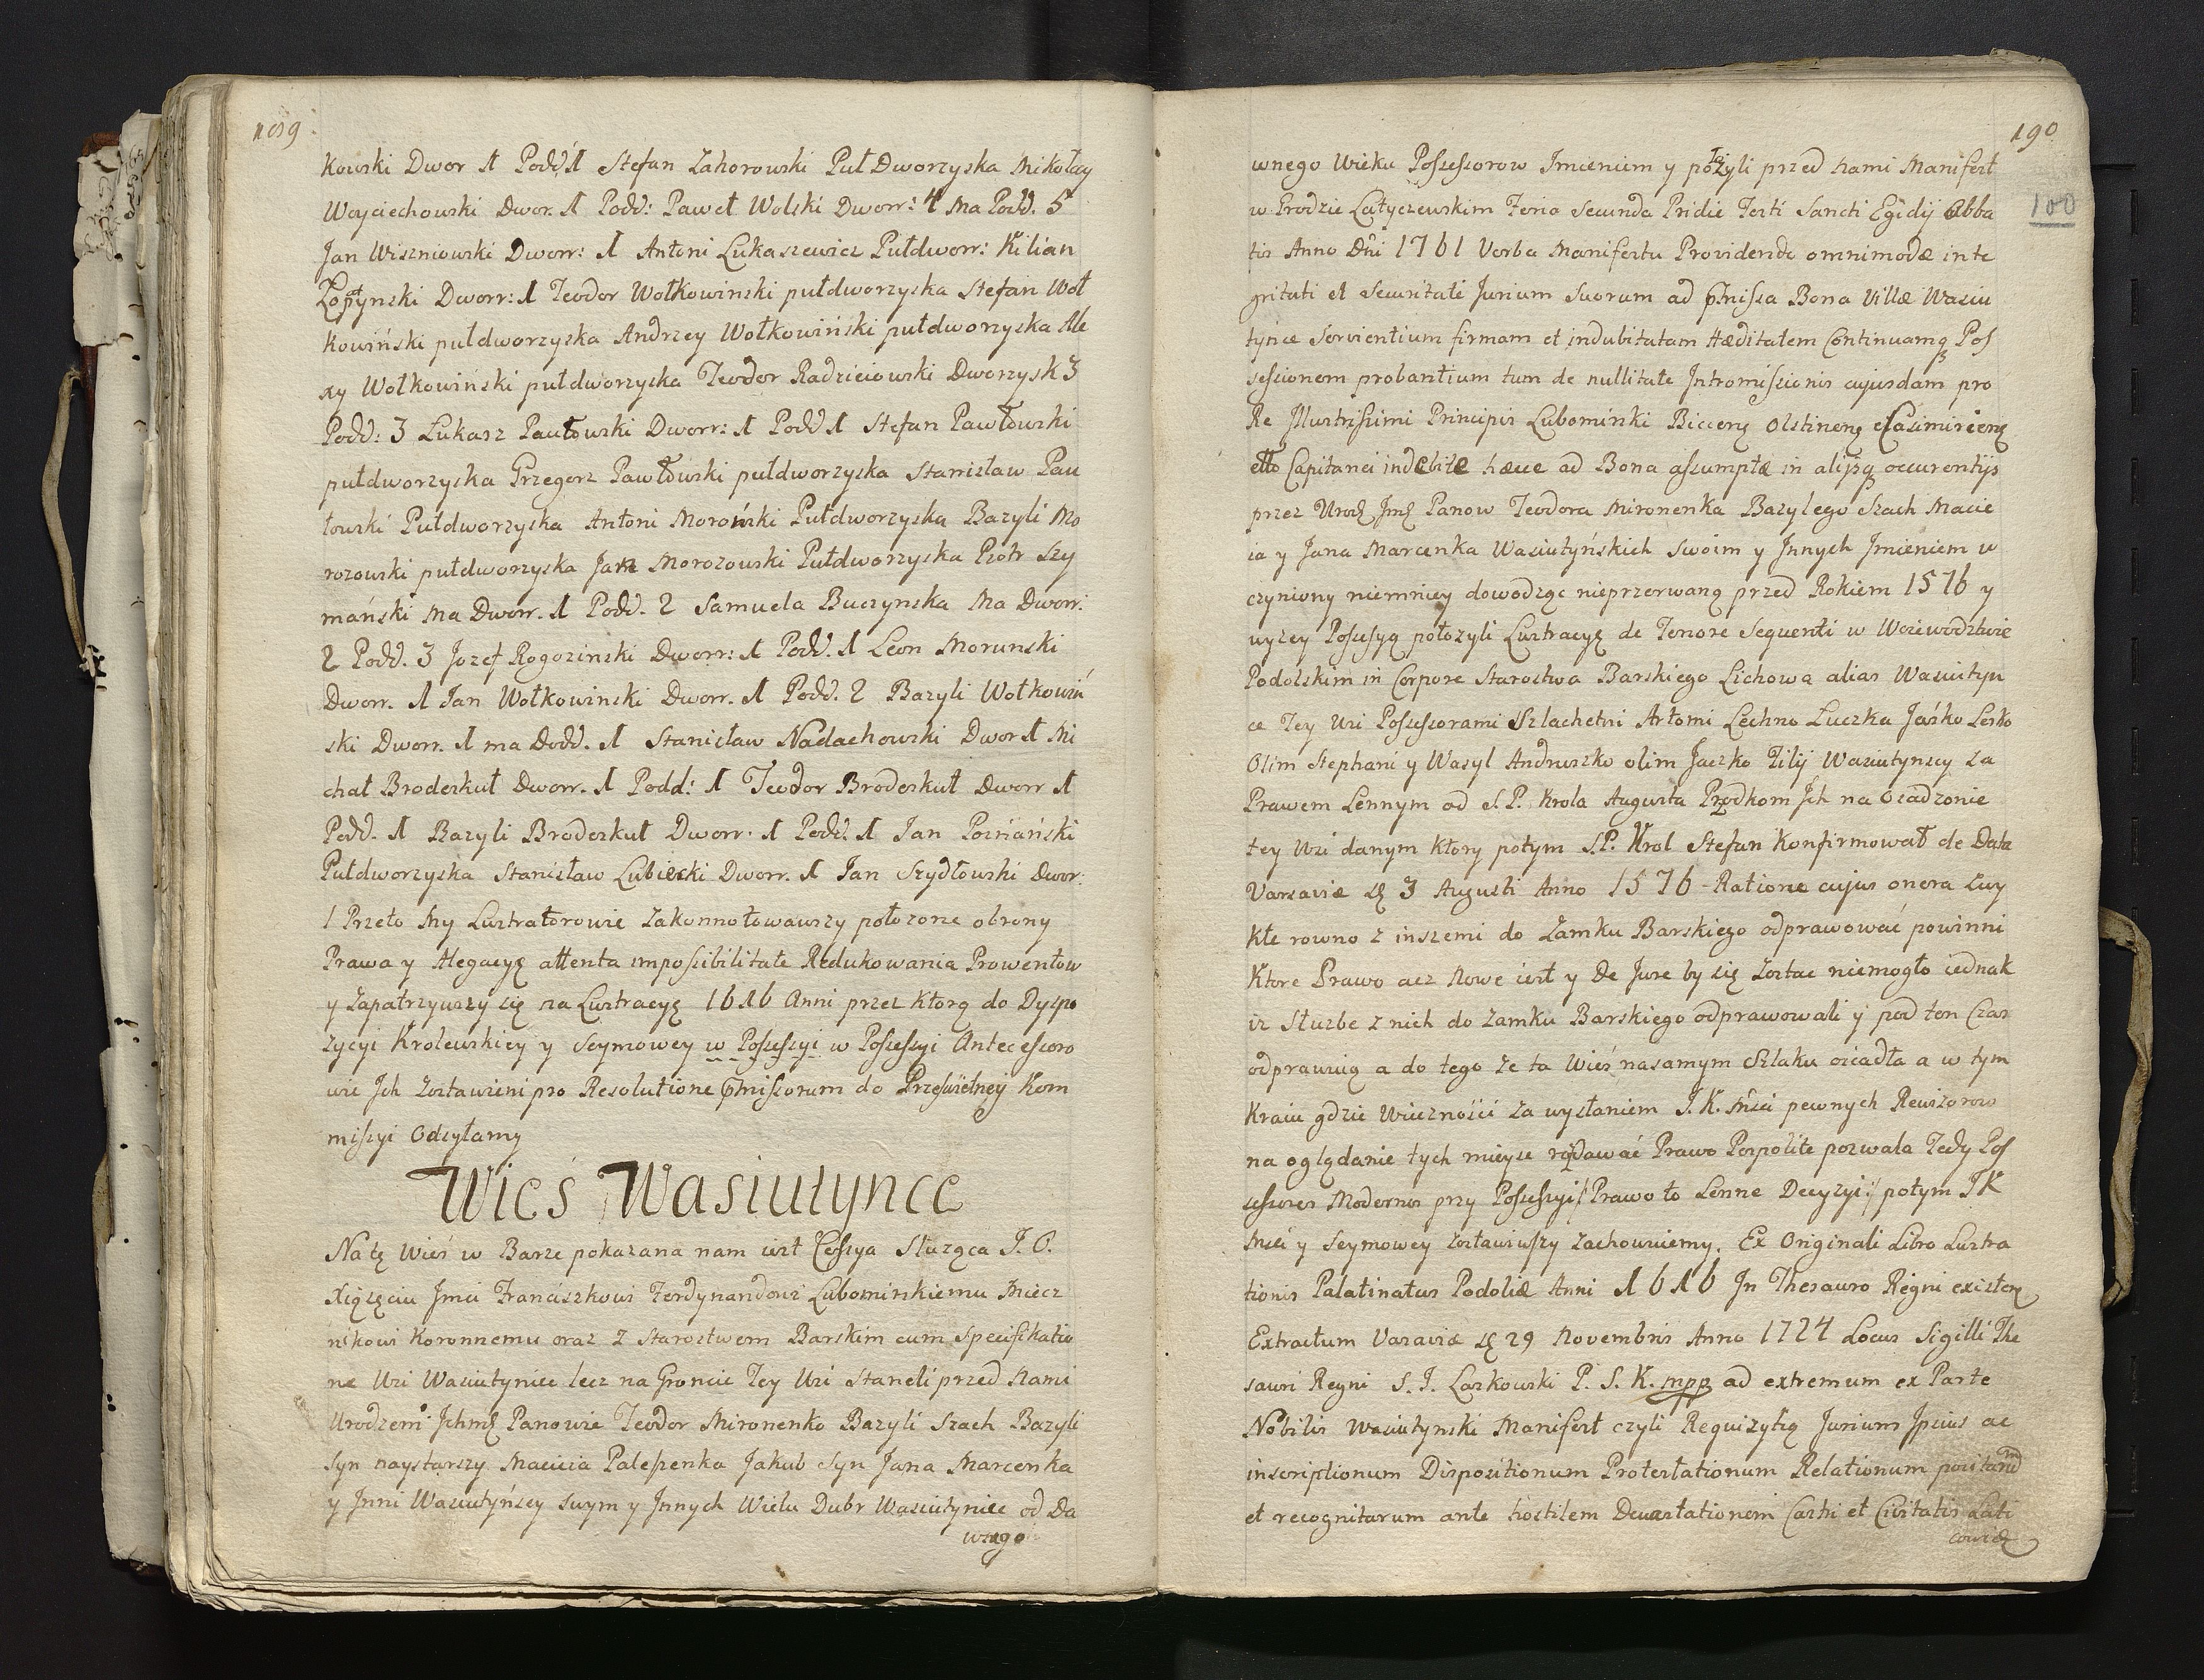 189
kowski Dwor 1 Podd: 1 Stefan Zahorowski Puł Dworzyska Mikołay
Woyciechowski Dwor. 1 Podd: Paweł Wolski Dworr: 4 Ma Podd. 5
Jan Wiszniowski Dworr: 1 Antoni Łukaszewicz Pułdworr: Kilian
Łopatynski Dworr: 1 Teodor Wołkowinski pułdworzyska Stefan Woł
kowiński pułdworzyska Andrzey Wołkowiński pułdworzyska Ale
xy Wołkowiński pułdworzyska Teodor Radzieiowski Dworzysk 3
Podd: 3 Łukasz Pawłowski Dworr: 1 Podd 1 Stefan Pawłowski
pułdworzyska Grzegorz Pawłowski pułdworzyska Stanisław Paw
łowski Pułdworzyska Antoni Moroński Pułdworzyska Bazyli Mo
rozowski pułdworzyska Jan Morozowski Pułdworzyska Piotr Szy
mański Ma Dworr. 1 Podd. 2 Samuela Buczynska Ma Dworr:
2 Podd. 3 Jozef Rogozinski Dworr: 1 Podd. 1 Leon Morunski
Dworr. 1 Jan Wołkowinski Dworr. 1 Podd. 2 Bazyli Wołkowiń
ski Dworr. 1 ma Podd. 1 Stanisław Nadachowski Dwor 1 Mi
chał Broderkuł Dworr. 1 Podd: 1 Teodor Broderkuł Dworr 1
Podd. 1 Bazyli Broderkuł Dworr: 1 Podd. 1 Jan Poznański
Pułdworzyska Stanisław Lubiecki Dworr. 1 Jan Szydłowski Dwor:
1 Przeto My Lustratorowie Zakonnotowawszy położone obrony
Prawa y Alegacyę attenta impossibilitate Redukowania Prowentow
y Zapatrzywszy się na Lustracyę 1616 Anni przez ktorą do Dyspo
zycyi Krolewskiey y Seymowey w Possessyi w Possessyi Antecessoro
wie Jch Zostawieni pro Resolutione pmissorum do Prześwietney Kom
missyi Odsyłamy
Wieś Wasiutynce
Na tę Wieś w Barze pokazana nam iest Cessya Służąca J. O.
Xiążęciu Jmci Franciszkowi Ferdynandowi Lubomirskiemu Miecz
nikowi Koronnemu oraz z Starostwem Barskim cum Specifikatio
ne Wsi Wasiutyniec lecz na Groncie Tey Wsi Staneli przed Nami
Urodzeni Jchmć Panowie Teodor Mironenko Bazyli Szach Bazyli
Syn naystarszy Macieia Palepenka Jakub Syn Jana Marcenka
y Jnni Wasiutyńscy Swym y Jnnych Wielu Dubr Wasiutyniec od Da
wnego
190
100
wnego Wieku Possessorow Jmieniem y położyli przed Nami Manifest
w Grodzie Latyczewskim Feria Secunda Pridie Festi Sancti Egidij Abba
tis Anno Dni 1761 Verba Manifestu Providendo omnimodæ inte
gritati et Securitati Jurium Suorum ad pmissa Bona Villæ Wasiu
tynce Servientium firmam et indubitatam Hæditatem Continuamq Pos
sessionem probantium tum de nullitate Jntromissionis cujusdam pro
Re Jllustrissimi Principis Lubomirski Biecens Olstinens Casimiriens
etto Capitanei indebite hæce ad Bona assumptæ in alijsq occurentijs
przez Urodz Jmć Panow Teodora Mironenka Bazylego Szach Macie
ia y Jana Marcenka Wasiutyńskich Swoim y Jnnych Jmieniem u
czyniony niemniey dowodząc nieprzerwaną przed Rokiem 1576 y
wyzey Possesyą położyli Lustracyę de Tenore Sequenti w Woiewodztwie
Podolskim in Corpore Starostwa Barskiego Lichowa alias Wasiutyn
ce Tey Wsi Possessorami Szlachetni Artomi Lechno Luczka Jaśko Lesko
Olim Stephani y Wasyl Andruszko olim Jaczko Filij Wasiutynscy Za
Prawem Lennym od S. P. Krola Augusta Przodkom Jch na Osadzenie
tey Wsi danym ktory potym S.P. Krol Stefan Konfirmował de Data
Varsaviæ d 3 Augusti Anno 1576 - Ratione cujus onera Zwy
kłe rowno z inszemi do Zamku Barskiego odprawować powinni
Ktore Prawo acz Nowe iest y De Jure by się Zostac niemogło iednak
iz Służbe z nich do Zamku Barskiego odprawowali y pod ten Czas
odprawuią a do tego Ze ta Wieś na samym Szlaku osiadła a w tym
Kraiu gdzie Wieczności Za wysłaniem J. K. Msci pewnych Rewizorow
na oglądanie tych mieysc rozdawać Prawo Pospolite pozwala Tedy Pos
sessores Modernos przy Possessyi / Prawo to Lenne Decyzyi / potym J K
Msci y Seymowey zostawiwszy Zachowuiemy. Ex Originali Libro Lustra
tionis Palatinatus Podoliæ Anni 1616 Jn Thesauro Regni existen
Extractum Varsaviæ d 29 Novembris Anno 1724 Locus Sigilli The
sauri Regni S. J. Laskowski P. S. K. mpp ad extremum ex Parte
Nobilis Wasiutynski Manifest czyli Requizytią Jurium Jpsius ac
inscriptionum Dispositionum Protestationum Relationum positarum
et recognitarum ante hostilem Devastationem Castri et Civitatis Lati